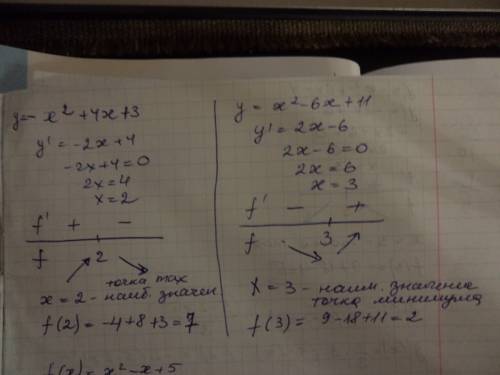 y=-x²+4x+3
y'=-2x+4
-2x+4=0
2x=4
x=2
f' + -
f 2
точка max
x=2-наиб. значен
f(2)=-4+8+3=7
f(x)=x²-x+5
y=x²-6x+11
y'=2x-6
2x-6=0
2x=6
x=3
f' - +
f 3
x=3-наим. значение
точка минимума
f(3)=9-18+11=2